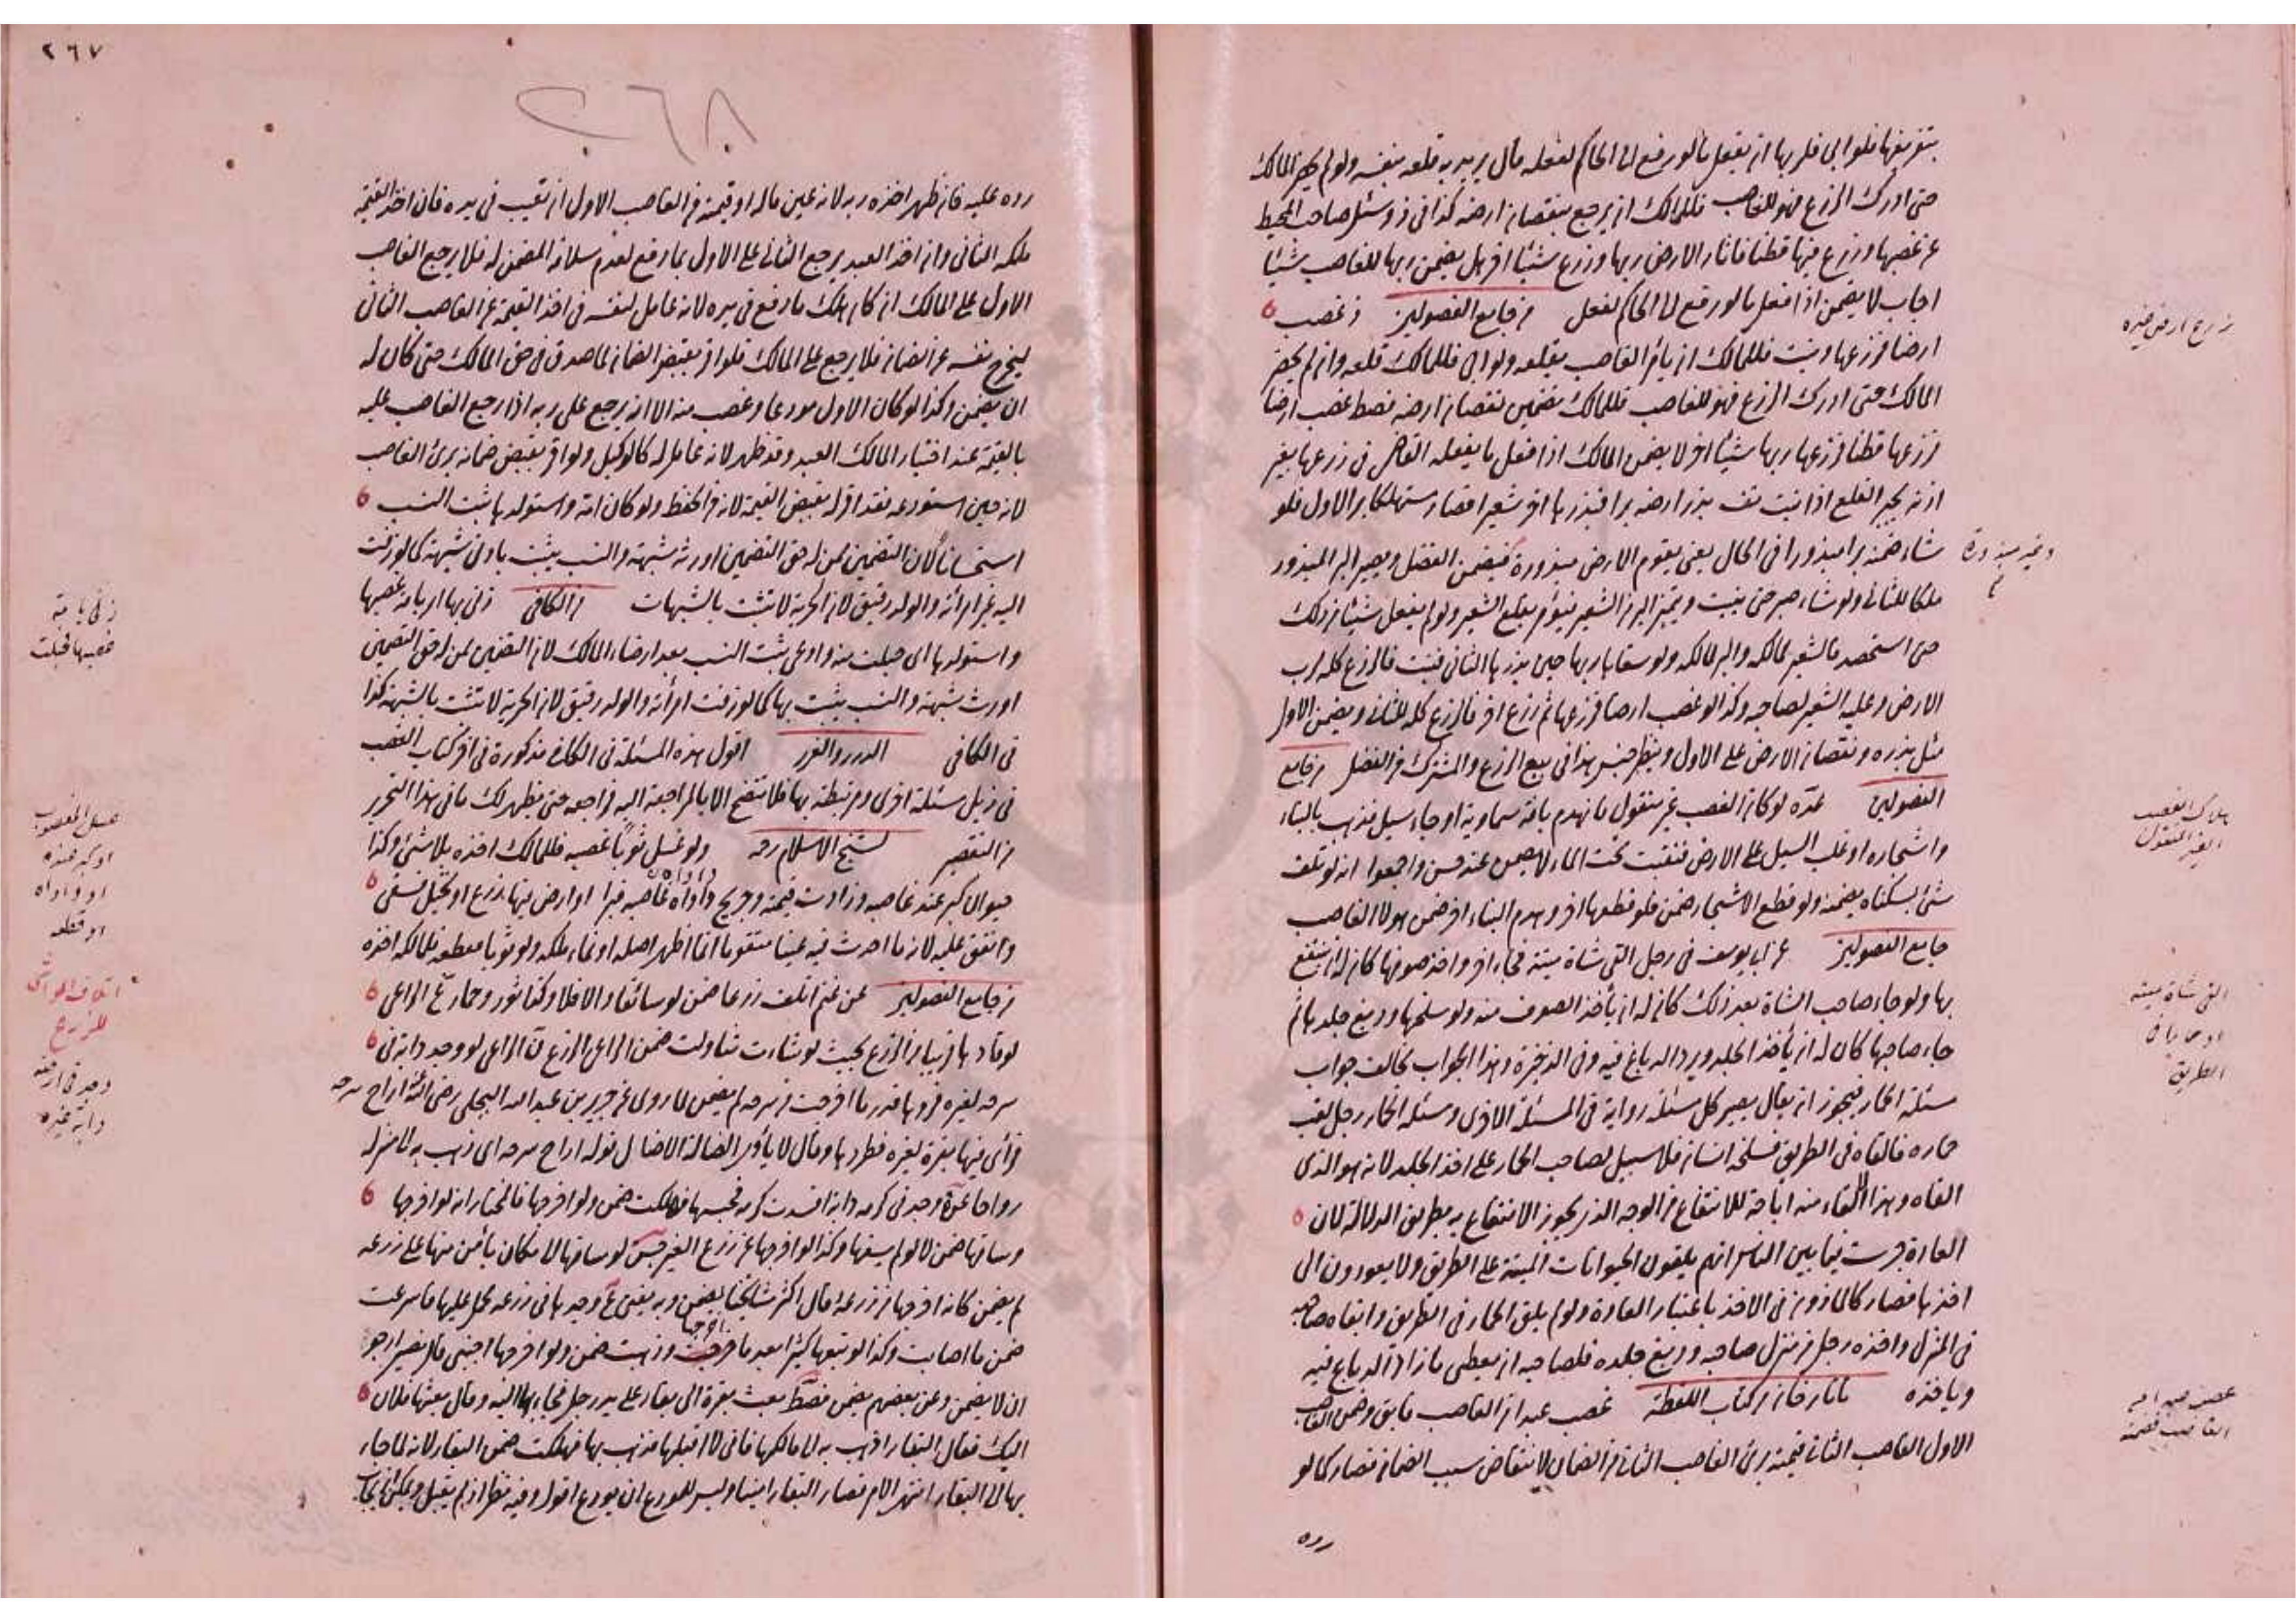 بتفريغها فلو ابى فلربها ان يفعل ما لو رفع الى الحاكم لفعله قال يريد به قلعه بنفسه ولو لم يحضر المالك
حتى ادرك الزرع فهو للغاصب فللمالك ان يرجع بنقصان ارضه كذا في وسئل صاحب المحيط
عن غصبها وزرع فيها قطنا فاثار الارض ربها وزرع شيئا اخر هل يضمن ربها للغاصب شيئا
اجاب لا يضمن اذا فعل ما لو رفع الى الحاكم لفعل من جامع الفصولين غصب
ارضا فزرعها ونبت فللمالك ان يأمر الغاصب بقلعه ولو ابى فللمالك قلعه وان لم يحضر
المالك حتى ادرك الزرع فهو للغاصب فللمالك تضمين نقصان ارضه غصب ارضا
فزرعها قطنا فزرعها ربها شيئا اخر لا يضمن المالك اذا فعل ما يفعله القاضي في زرعها بغير
اذنه يجبر القلع اذا نبت بذر ارضه برا فبذرها اخر شعيرا فصار مستهلكا بر الاول فلو
شاء ضمنه برا مبذورا في الحال يعني يقوم الارض مبذورة فيضمن الفضل ويصير البر المبذور
ملكا للثاني ولو شاء صبر حتى ينبت ويتميز البر من الشعير فيؤمر بقلع الشعير ولو لم يفعل شيئا من ذلك
حتى استحصد فالشعير لمالكه والبر لمالكه ولو سقاها ربها حين بذرها الثاني فنبت فالزرع كله لرب
الارض وعليه الشعير لصاحبه وكذا لو غصب ارضا فزرعها ثم زرع اخر فالزرع كله للثاني ويضمن الاول
مثل بذره ونقصان الارض على الاول وينظر جنس هذا في بيع الزرع والمشترك من الفضل من جامع
الفصولين عده لو كان الغصب غير منقول فانهدم بافة سماوية او جاء سيل فذهب بالبناء
واشجاره او غلب السيل على الارض فبقيت تحت الماء لم يضمن عند واجمعوا انه لو تلف
شئ بسكناه يضمنه ولو قطع الاشجار ضمن فلو قطعها اخر وهدم البناء اخر ضمن هو لا الغاصب
جامع الفصولين عن ابي يوسف في رجل القى شاة ميتة فجاء اخر واخذ صوفها كان له ان ينتفع
بها ولو جاء صاحب الشاة بعد ذلك كان له ان يأخذ الصوف منه ولو سلخها ودبغ جلدها ثم
جاء صاحبها كان له ان يأخذ الجلد ويرد الدباغ فيه وفي الذخيرة وهذا الجواب يخالف جواب
مسئلة الحمار فيجوز ان يقال يصير كل مسئلة رواية في المسئلة الاخرى ومسئلة الحمار رجل
حماره فالقاه في الطريق فسلخه انسان فلا سبيل لصاحب الحمار على اخذ الجلد لانه هو الذي
القاه وهذا الالقاء منه اباحة للانتفاع من الوجه الذي يجوز الانتفاع به بطريق الدلالة لان
العادة جرت فيما بين الناس انهم يلقون الحيوانات الميتة على الطريق ولا يعودون الى
اخذها فصار كالماذون في الاخذ باعتبار العادة ولو لم يلق الحمار في الطريق وابقاه صاحبه
في المنزل واخذه رجل من منزل صاحبه ودبغ جلده فلصاحبه ان يعطى ما زاد الدباغ فيه
وياخذه تاتارخان من كتاب اللقطة غصب عبدا من الغاصب فابق وضمن الغاصب
الاول الغاصب الثاني قيمته برئ الغاصب الثاني من الضمان لانتقاض سبب الضمان فصار كما لو
رده
زرع ارض غيره
وغير مبذورة
هلاك الغصب
الغير المنقول
القى شاة ميتة
او حمارا في
الطريق
٢٦٧
٢٦٨
رده عليه فان ظهر اخذه ربه لانه عين ماله او قيمته من الغاصب الاول ان تعيب في يده فان اخذ القيمة
ملكه الثاني وان اخذ العبد يرجع الثاني على الاول بما دفع لعدم سلامة المضمون له فلا يرجع الغاصب
الاول على المالك ان كان هلك ما دفع في يده لانه عامل لنفسه في اخذ القيمة من الغاصب الثاني
ليخرج نفسه عن الضمان فلا يرجع على المالك فلو اقر بقبض الضمان لما صدق في حق المالك حتى كان له
ان يضمن وكذا لو كان الاول مودعا وغصب منه الا انه يرجع على ربه اذا رجع الغاصب عليه
بالقيمة عند اختيار المالك العبد وقد ظهر لانه عامل له كالوكيل ولو اقر بقبض ضمانه برئ الغاصب
لانه حين استودعه فقد اقر له بقبض القيمة لانه من الحفظ ولو كان امة واستولدها ثبت النسب
استحسانا لان التضمين ممن له حق التضمين اورثه شبهة والنسب يثبت بادنى شبهة كما لو زفت
اليه غير امرأته والولد رقيق لان الحرية لا تثبت بالشبهات من الكافي زنى بها
واستولدها اى حبلت منه وادعى ثبت النسب بعد ارضاء المالك لان التضمين ممن له حق التضمين
اورث شبهة والنسب يثبت بها كما لو زفت امرأته والولد رقيق لان الحرية لا تثبت بالشبهة كذا
في الكافي الدرر والغرر اقول هذه المسئلة في الكافي مذكورة في اخر كتاب الغصب
في ذيل مسئلة اخرى ومرتبطة بها فلا تتضح الا بالمراجعة اليه فراجعه حتى يظهر لك ما في هذا التحرير
من التقصير لشيخ الاسلام رحمه ولو غسل ثوبا غصبه فللمالك اخذه بلا شئ وكذا
حيوان كبر عند غاصبه وزادت قيمته وجريح داواه غاصبه فبرأ او ارض فيها زرع او نخيل فسقى
وانفق عليه لانه ما احدث فيه عينا متقوما انما اظهر اصله او نماء ملكه ولو ثوبا فقطعه فلمالكه اخذه
من جامع الفصولين عن غنم اتلف زرعا ضمن لو سائقا والا فلا وكذا ثور وحمار الراعى
لو قاد ها قريبا من الزرع بحيث لو شاءت تناولت ضمن الراعى الزرع الراعى لو وجد دابة في
سرحه لغيره فردها قدر ما اخرجت من سرحه لم يضمن لما روى عن جرير بن عبد الله البجلى رضى الله اراح سرحه
فرأى فيها بقرة لغيره فطردها وقال لا يأوى الضالة الا ضال قوله اراح سرحه اى ذهب به الى منزله
رواحا عده وجد في كرمه دابة افسدت كرمه فحبسها فهلكت ضمن ولو اخرجها فالمختار انه لو اخرجها
وساقها ضمن لا لو لم يسقها وكذا لو اخرجها عن زرع الغير لو ساقها الى مكان يأمن منها على زرعه
لم يضمن كانه اخرجها من زرعه قال اكثر مشايخنا يضمن وبه يفتى وجدها في زرعه حمل عليها فاسرعت
ضمن ما اصابت وكذا لو تبعها كثيرا بعد ما خرجت وذهبت ضمن ولو اخرجها اجنبى
ان لا يضمن وعن بعضهم يضمن بعث بقرة الى بقار على يد رجل فجاء بها اليه وقال بعثها فلان
اليك فقال البقار اذهب بها الى مالكها فانى لا اقبلها فذهب بها فهلكت ضمن البقار لانه لما جاء
بها الى البقار انتهى الامر فصار البقار امينا وليس للمودع ان يودع اقول وفيه نظر اذ لم يقبل
غصبها فحبلت
غسل المغصوب
او كبر عنده
او داواه
او قطعه
اتلاف المواشى
للزرع
وجد في ارضه
دابة غيره